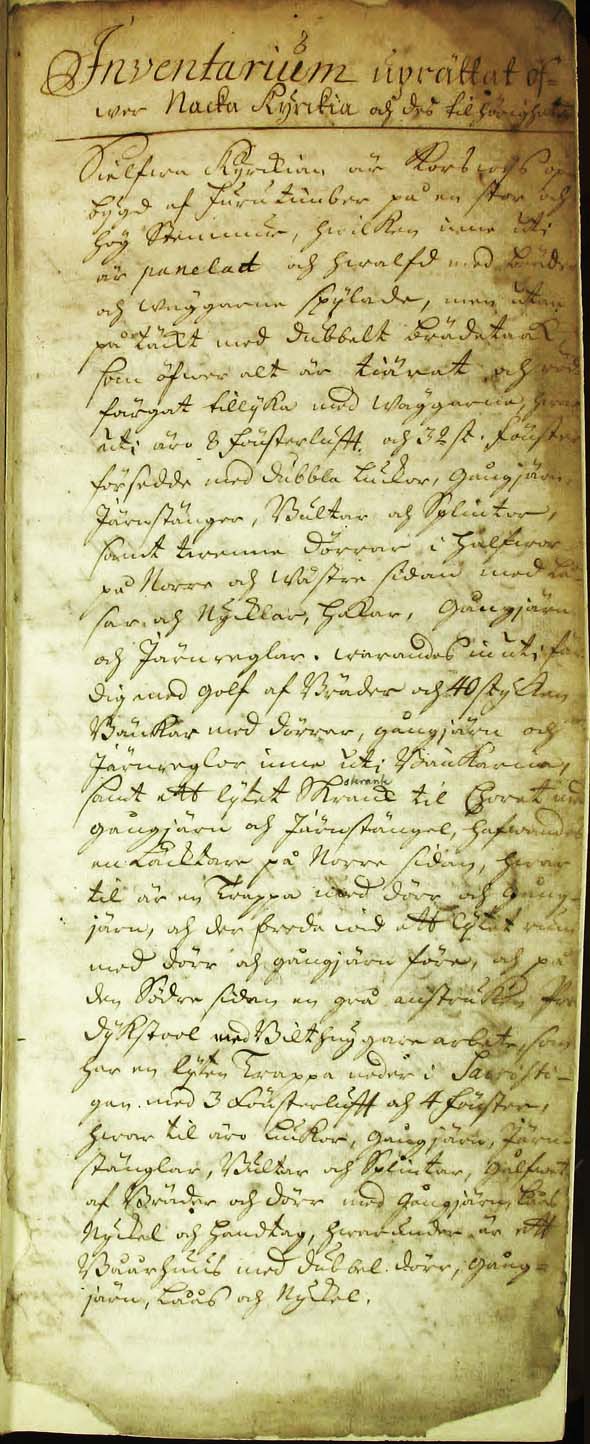 8
Inventarium uprättat öf=
wer Nacka Kyrckia och des tilhörighet
Sielfwa Kyrckian är Korswijs op
bygd af furu timber på en stor och
hög Stenmur, hwilken inne uti
är panelad och hwalfd med Bräder
och wäggarne spylade, men utan
på täckt med dubbelt Brädetaak
som öfwer alt är tiärat och röd
färgat tillyka med Waggarne, hwar
uti äro 8 fönsterlufft och 32 st. fönster
försedde med dubbla Luckor, Gångjärn,
Järnstänger, Bultar och Splintar,
samt twenne Dörrar i halfwor
på Norre och Wästre sidan med Lå-
sar och Nycklar, Hakar, Gångjärn
och Järnreglar. warandes inuti fär
dig med Golf af Bräder och 40 stycken
Bänkar med dörrar, gångjärn och
Järnreglor inne uti Bänkarne,
skrank
samt ett lytet Skrank til Choret med
gångjärn och Järnstängel, hafwandes
en Läcktare på Norre sidan, hwar
til är en Trappa med dörr och Gång-
järn, och der breda wid ett lytet rum
med dörr och gångjärn före, och på
den Södre sidan en grå anstruken Pre
dykstool med Bilthuggare arbete, som
har en lyten Trappa neder i Sacristi-
gan med 3 Fönsterlufft och 4 fönster,
hwar til äro Luckor, Gångjärn, Järn-
stänglar, Bultar och Splintar, Golfwet
af Bräder och dörr med Gångjärn, Lås
Nyckel och Handtag, hwarunder är ett
Baarhuus med dubbel dörr, Gång-
järn, Laas och Nyckel.